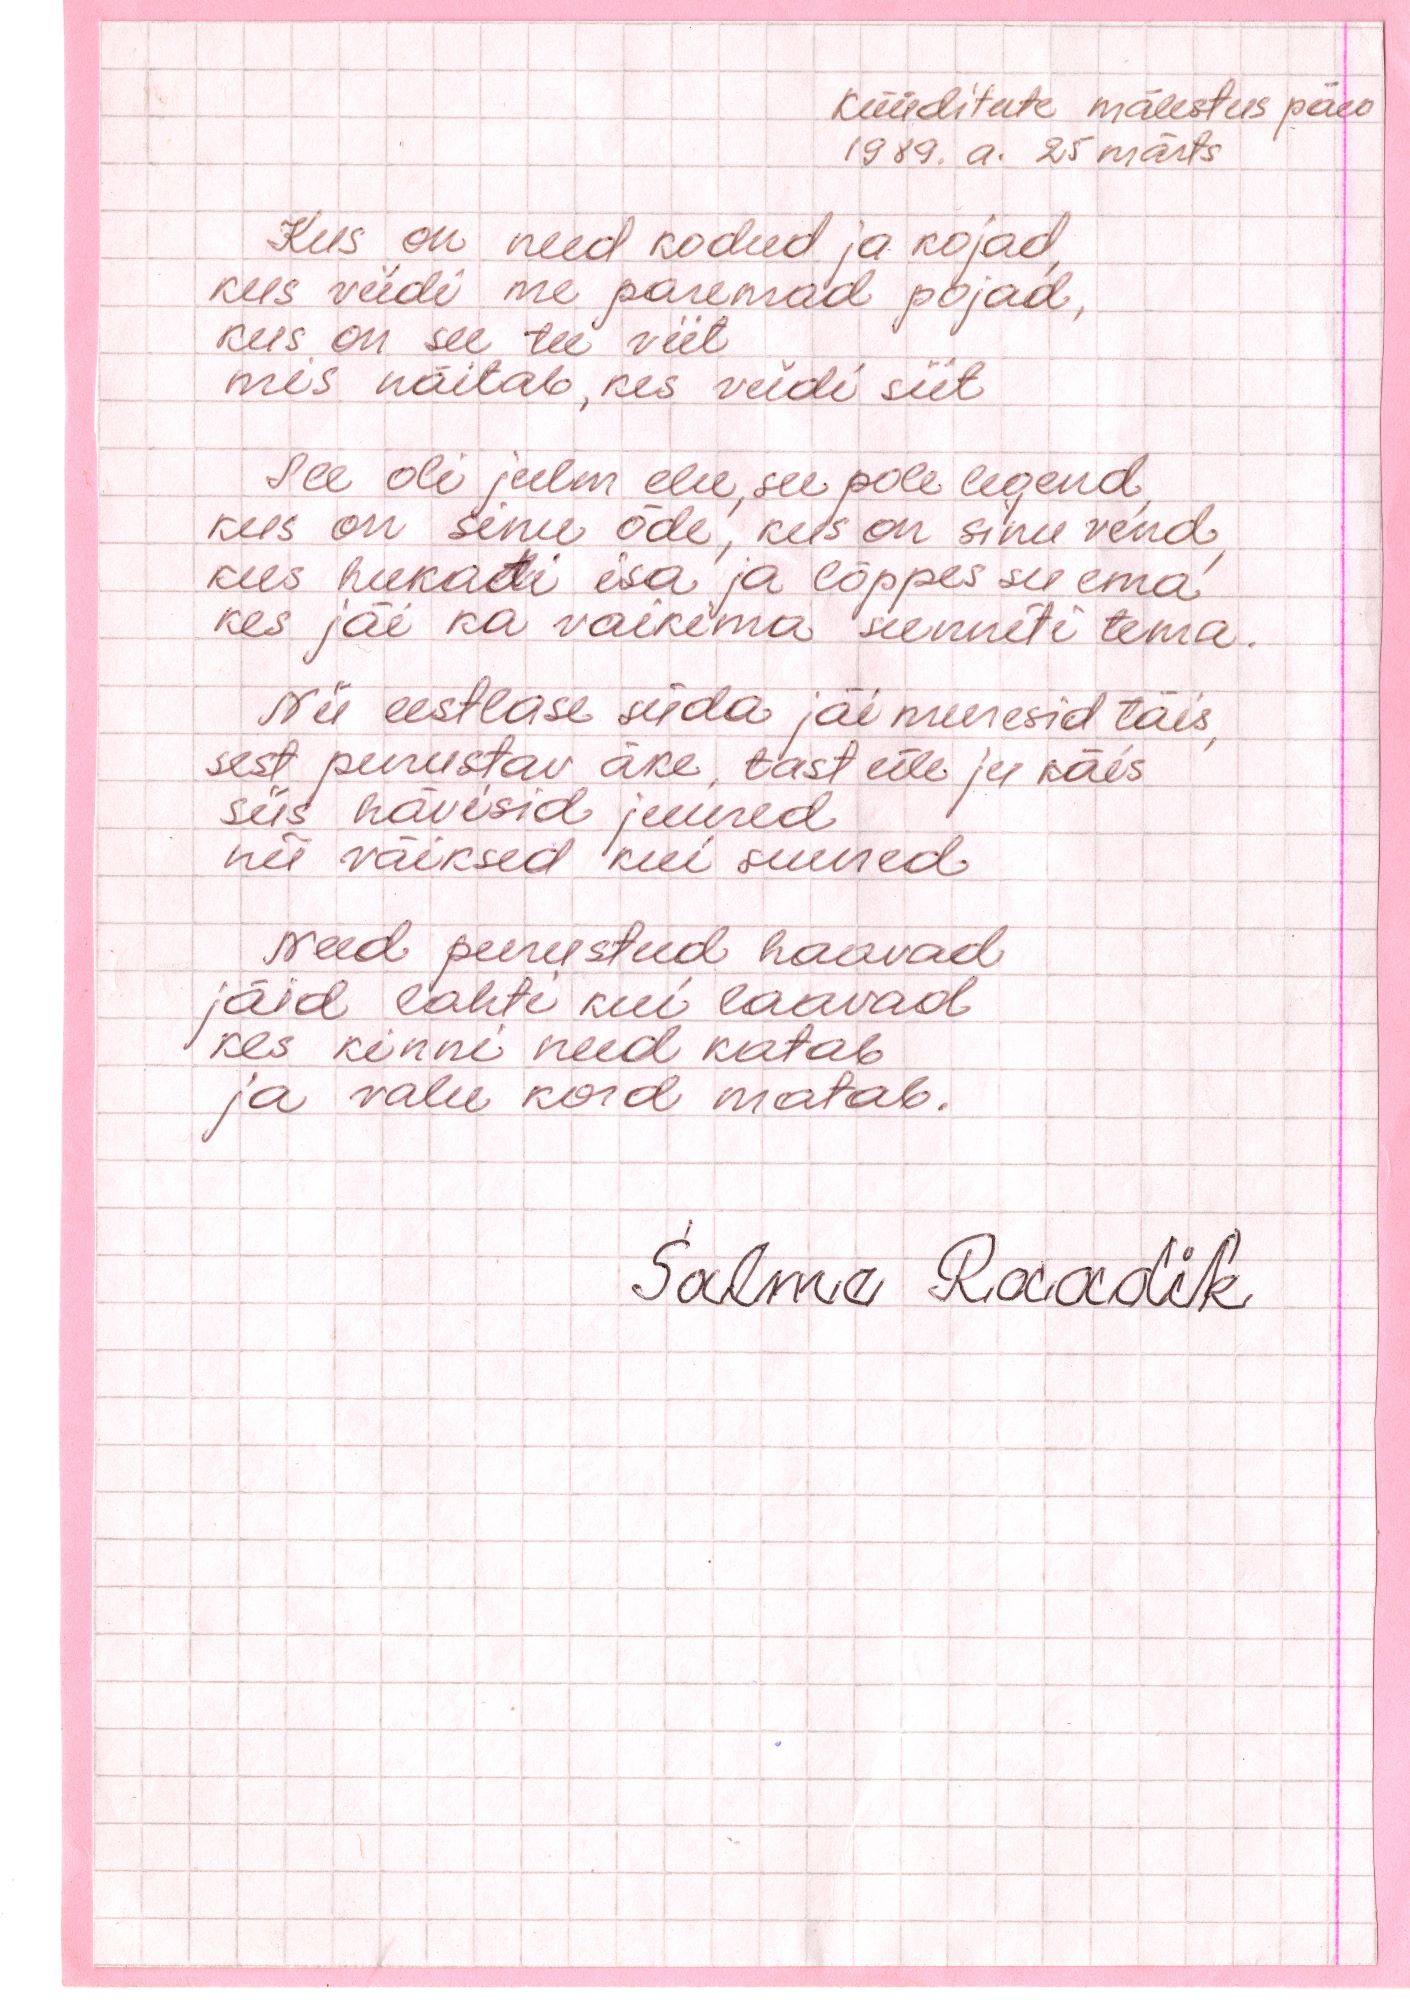 Küüditute mälestus päev
1989. a. 25 märts
Kus on need kodud ja kojad,
kus viidi me paremad pojad,
kus on see tee viit
mis näitab, kes viidi siit
See oli julm elu, see pole legend,
kus on sinu õde, kus on sinu vend,
kus hukati isa ja lõppes su ema
kes jäi ka vaikima sunniti tema.
Nii eestlase süda jäi muresid täis,
sest purustav äke, tast üle ju käis
siis hävisid juured
nii väiksed kui suured
Need purustud haavad
jäid lahti kui laavad
kes kinni need katab
ja valu kord matab.
Salme Raadik